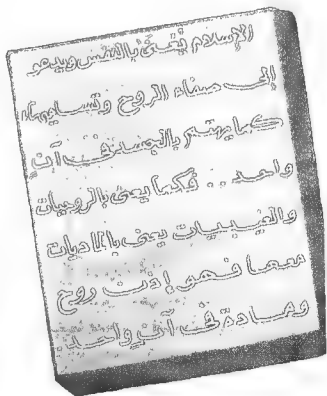 الإسلام يُعنى بالنفس ويدعو
إلى صفاء الروح وتساميها،
كما يهتم بالجسد في آن
واحد .. فكما يعنى بالروحيات
والغيبيات يعنى بالماديات
معا فهو إذن روح
ومادة في آن واحد.